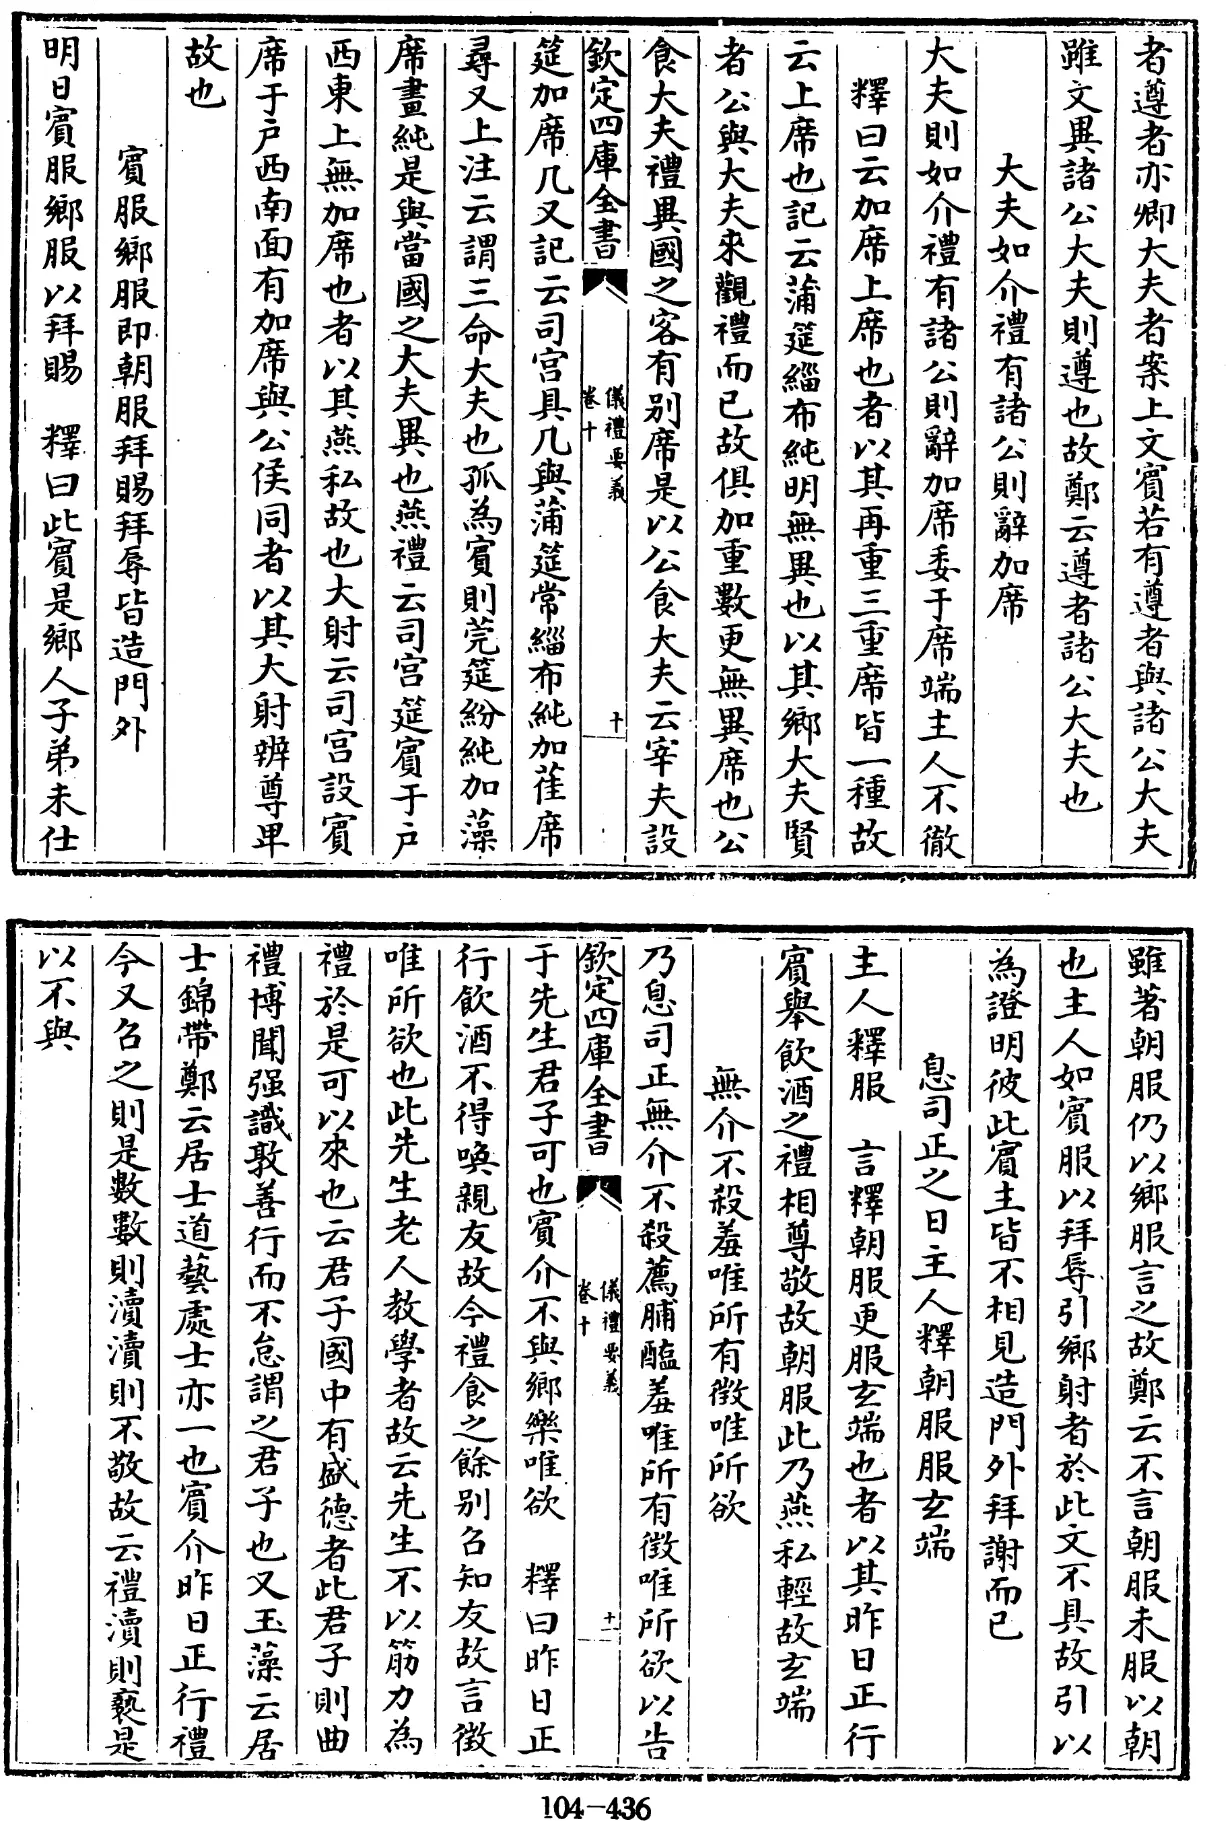 者遵者亦卿大夫者案上文賓若有遵者與諸公大夫
雖文異諸公大夫則遵也故鄭云遵者諸公大夫也
大夫如介禮有諸公則辭加席
大夫則如介禮有諸公則辭加席委于席端主人不徹
釋曰云加席上席也者以其再重三重席皆一種故
云上席也記云蒲筵緇布純明無異也以其鄉大夫賢
者公與大夫來觀禮而已故俱加重數更無異席也公
食大夫禮異國之客有別席是以公食大夫云宰夫設
欽定四庫全書
儀禮要義
卷十
十
筵加席几又記云司宫具几與蒲筵常緇布純加萑席
尋又上注云謂三命大夫也孤為賓則莞筵紛純加藻
席畫純是與當國之大夫異也燕禮云司宫筵賓于戶
西東上無加席也者以其燕私故也大射云司宫設賓
席于戶西南面有加席與公侯同者以其大射辨尊卑
故也
賓服鄉服即朝服拜賜拜辱皆造門外
明日賓服鄉服以拜賜 釋曰此賓是鄉人子弟未仕
雖著朝服仍以鄉服言之故鄭云不言朝服未服以朝
也主人如賓服以拜辱引鄉射者於此文不具故引以
為證明彼此賓主皆不相見造門外拜謝而已
息司正之日主人釋朝服服玄端
主人釋服 言釋朝服更服玄端也者以其昨日正行
賓舉飲酒之禮相尊敬故朝服此乃燕私輕故玄端
無介不殺羞唯所有徵唯所欲
乃息司正無介不殺薦脯醢羞唯所有徵唯所欲以告
欽定四庫全書
儀禮要義
卷十
十一
于先生君子可也賓介不與鄉樂唯欲 釋曰昨日正
行飲酒不得喚親友故今禮食之餘別召知友故言徵
唯所欲也此先生老人教學者故云先生不以筋力為
禮於是可以來也云君子國中有盛德者此君子則曲
禮博聞强識敦善行而不怠謂之君子也又玉藻云居
士錦帶鄭云居士道藝處士亦一也賓介昨日正行禮
今又召之則是數數則瀆瀆則不敬故云禮瀆則褻是
以不與
104-436